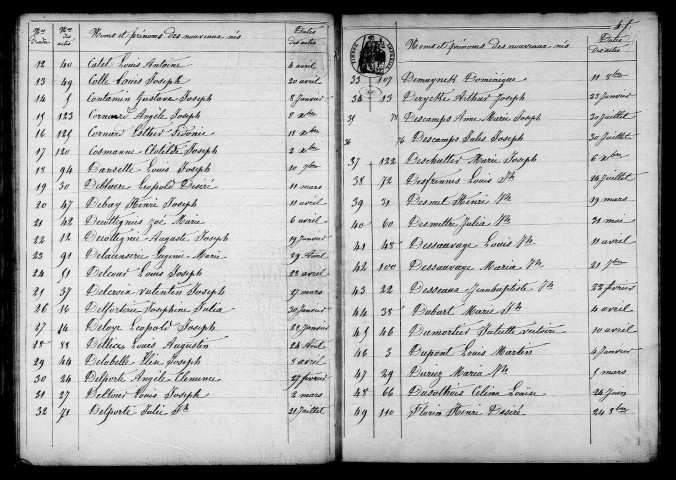 Nos d'ordre Nos des actes Noms et prénoms des nouveaux nés Dates des actes
12 40 Catel Louis Antoine 4 avril
13 49 Colle Louis Joseph 20 avril
14 5 Contamin Gustave Joseph 8 Janvier
15 123 Cornard Angèle Joseph 8 xbre
16 125 Cornard Esther Sidonie 18 xbre
17 120 Cosmanne Clotilde Joseph 2 xbre
18 94 Dansette Louis Joseph 10 7bre
19 30 Leopold Desiré 11 mars
20 47 Debay Henri Joseph 11 avril
21 42 Decottegnies Zoé Marie 6 avril
22 12 Decottegnie Auguste Joseph 19 Janvier
23 91 Delacenserie Eugenie Marie 29 Août
24 51 Delcour Louis Joseph 23 avril
25 37 Delcroix Valentin Joseph 27 mars
26 16 Delforterie Josephine Julia 30 Janvier
27 14 Deloye Leopold Joseph 28 Janvier
28 88 Louis Augustin 24 Août
29 44 Delobelle Elise Joseph 8 avril
30 24 Delporte Angèle Clemence 27 février
31 27 Louis Joseph 2 mars
32 71 Delporte Julie Jh 21 Juillet
Noms et prénoms des nouveaux nés Dates des actes
33 107 Demuynck Dominique 11 8bre
34 13 Derycke Arthur Joseph 23 Janvier
35 78 Descamps Anne Marie Joseph 30 Juillet
36 76 Descamps Jules Joseph 30 Juillet
37 122 Marie Joseph 6 xbre
38 72 Desfrennes Louis Jh 24 Juillet
39 31 Desmet Henri Jh 19 mars
40 60 Desmette Julia Jh 31 mai
41 48 Dessauvage Louis Jh 11 avril
42 100 Dessauvage Maria Jh 21 7bre
43 22 Desseaux Jeanbaptiste Jh 22 février
44 38 Dubart Marie Jh 4 avril
45 46 Dumortier Juliette 10 avril
46 3 Dupont Louis Martin 4 Janvier
47 29 Duriez Maria Jh 5 mars
48 66 Dusolthois Celina Louise 24 Juin
49 110 Florin Henri Desiré 24 8bre